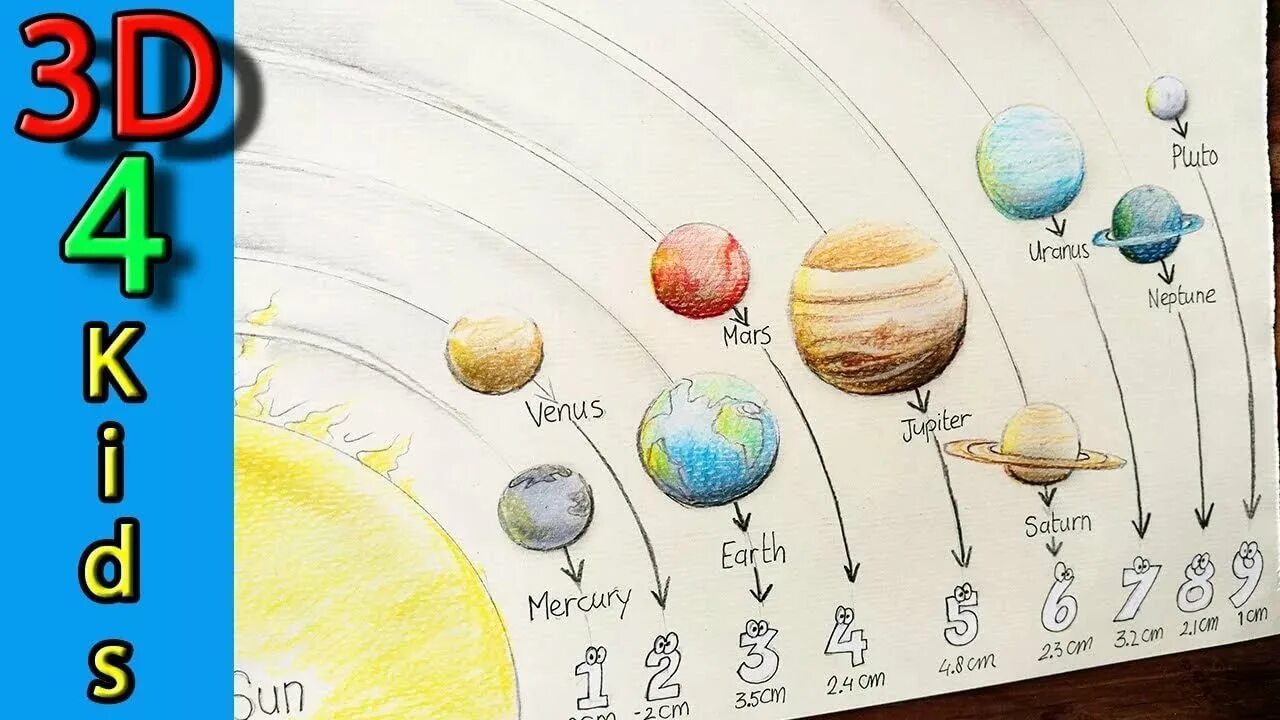 3D
4
Kids
Pluto
Uranus
Neptune
Mars
Venus
Jupiter
Saturn
Earth
Mercury
Sun
1 2 3 4 5 6 7 8 9
-2cm 3.5cm 2.4 cm 4.8 cm 2.3 cm 3.2 cm 2.1cm 1 cm